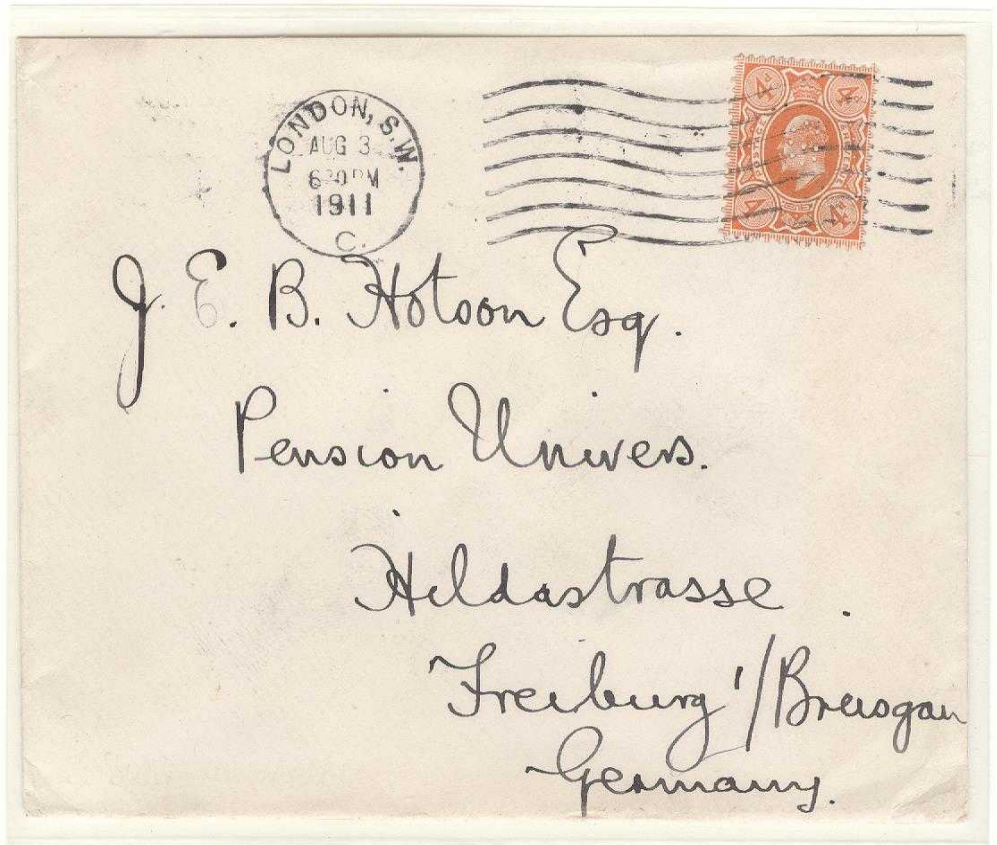 LONDON, S.W.
AUG 3
6 30 PM
1911
C.
4d 4d
4d 4d
J. E. B. Hotson Esq.
Pension Univers.
Hildastrasse.
Freiburg i/Breisgau
Germany.